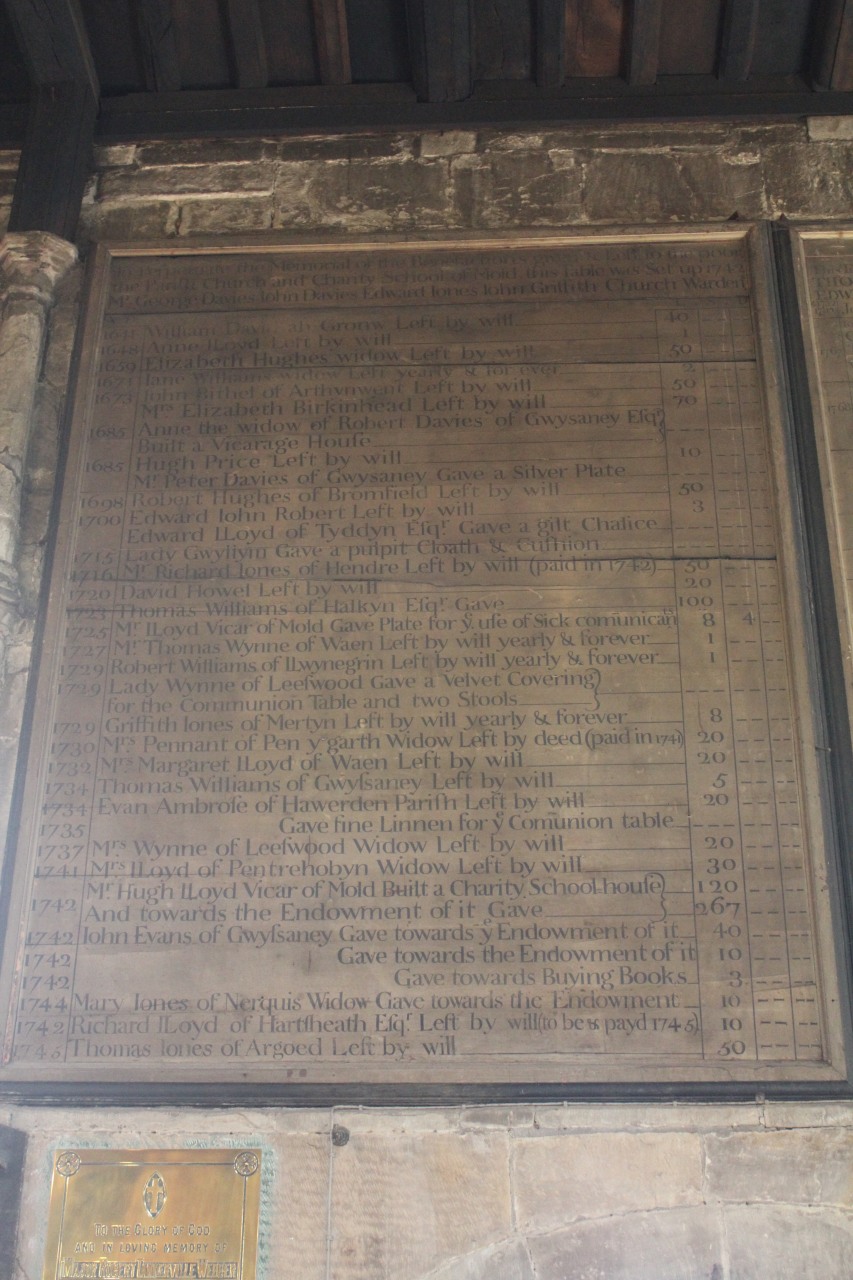 the Memorial of the Benefactions given & Left to the poor
the Parish Church and Charity School of Mold, this Table was Set up 1742
Mr George Davies Iohn Davies Edward Iones Iohn Griffith Church Wardens
William Davies ab Gronw Left by will 40
1648 Anne lLoyd Left by will 1
1659 Elizabeth Hughes widow Left by will 50
1671 Iane Williams widow Left yearly & for ever 2
1673 Iohn Bithel of Arthynwent Left by will 50
Mrs Elizabeth Birkinhead Left by will 70
1685 Anne the widow of Robert Davies of Gwysaney Esqr
Built a Vicarage Houſe
1685 Hugh Price Left by will 10
Mr Peter Davies of Gwysaney Gave a Silver Plate
1698 Robert Hughes of Bromfield Left by will 50
1700 Edward Iohn Robert Left by will 3
Edward lLoyd of Tyddyn Eſqr Gave a gilt Chalice
1715 Lady Gwyllym Gave a pulpit Cloath & Cuſhion
1716 Mr Richard Iones of Hendre Left by will (paid in 1742) 50
1720 David Howel Left by will 20
1723 Thomas Williams of Halkyn Eſqr Gave 100
1725 Mr lLoyd Vicar of Mold Gave Plate for ye uſe of Sick com̄unican 8 4
1727 Mr Thomas Wynne of Waen Left by will yearly & forever 1
1729 Robert Williams of lLwynegrin Left by will yearly & forever 1
1729 Lady Wynne of Leeſwood Gave a Velvet Covering
for the Communion Table and two Stools
1729 Griffith Iones of Mertyn Left by will yearly & forever 8
1730 Mrs Pennant of Pen y garth Widow Left by deed (paid in 1741) 20
1732 Mrs Margaret lLoyd of Waen Left by will 20
1734 Thomas Williams of Gwyſaney Left by will 5
1734 Evan Ambroſe of Hawerden Pariſh Left by will 20
1735 Gave fine Linnen for ye Com̄union table
1737 Mrs Wynne of Leeſwood Widow Left by will 20
1741 Mrs lLoyd of Pentrehobyn Widow Left by will 30
1742 Mr Hugh lLoyd Vicar of Mold Built a Charity School houſe 120
And towards the Endowment of it Gave 267
1742 Iohn Evans of Gwyſaney Gave towards ye Endowment of it 40
1742 Gave towards the Endowment of it 10
1742 Gave towards Buying Books 3
1744 Mary Iones of Nerquis Widow Gave towards the Endowment 10
1742 Richard lLoyd of Hartſheath Eſqr Left by will (to be payd 1745) 10
1745 Thomas Iones of Argoed Left by will 50
TO THE GLORY OF GOD
AND IN LOVING MEMORY OF